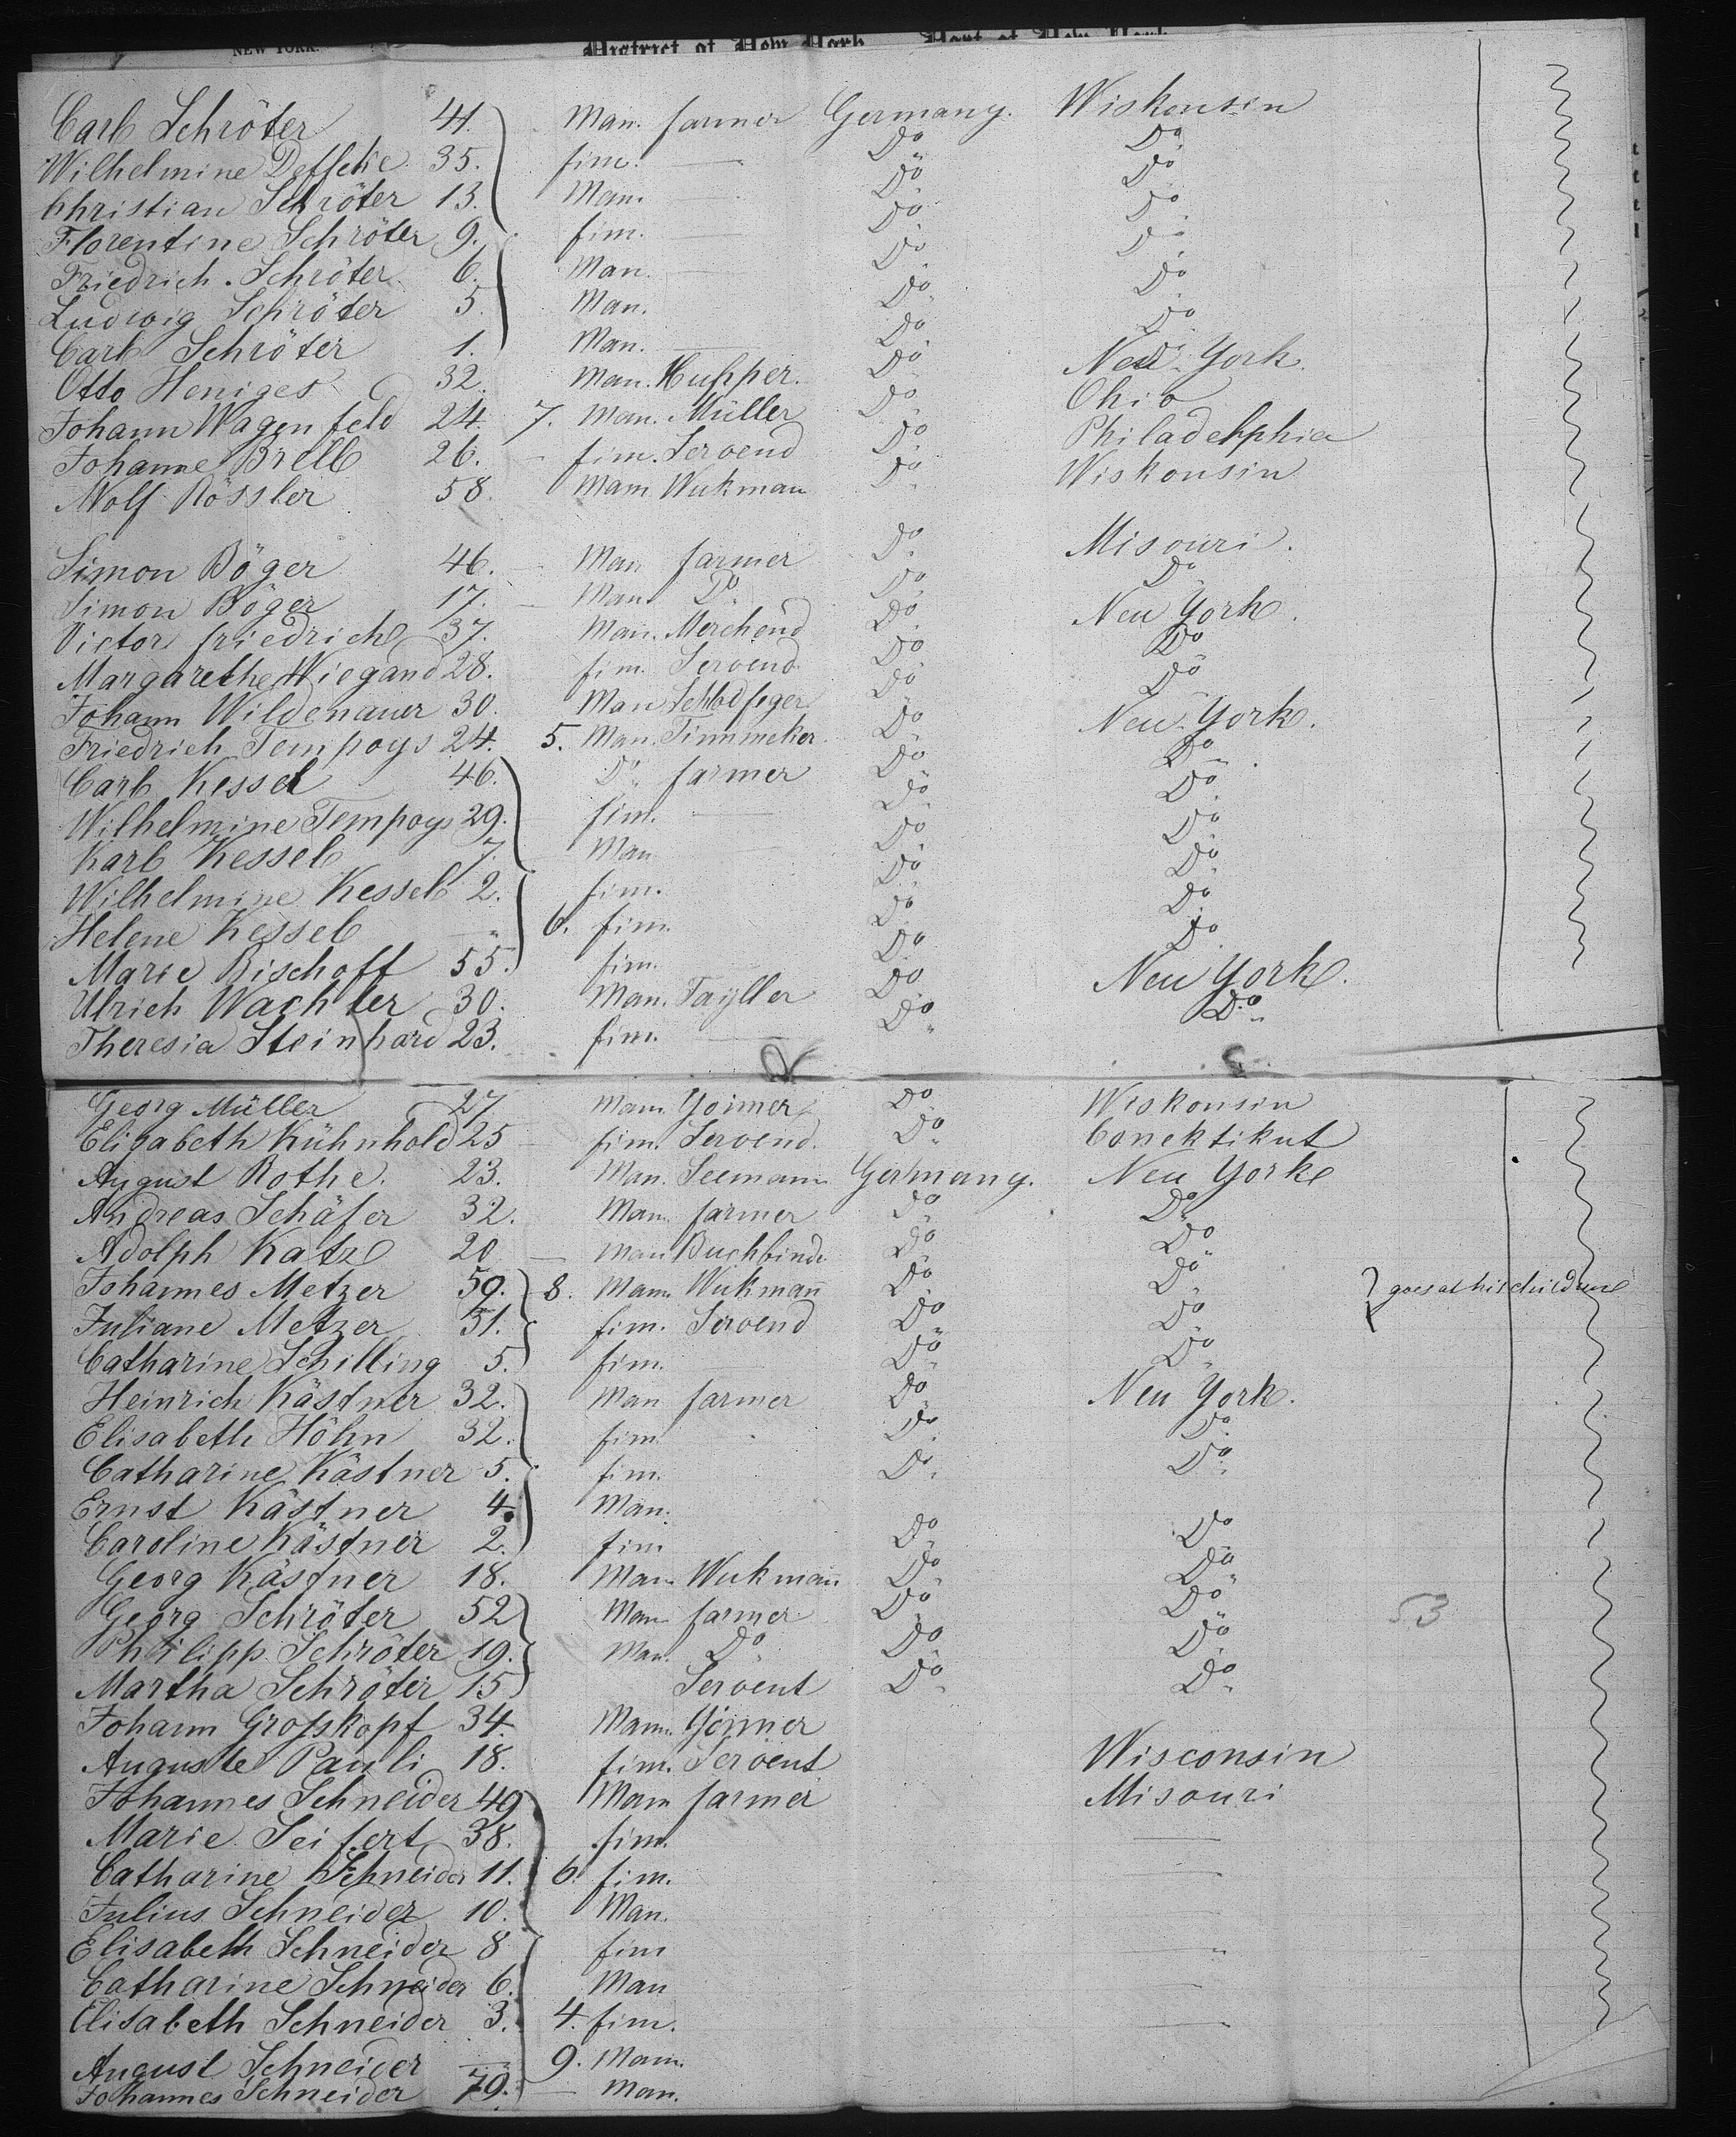 NEW YORK. District of New York Port of New York
Carl Schröter 41. Man. farmer Germany. Wiskonsin
Wilhelmine 35. fim. Do Do
Christian Schröter 13. Man. Do Do
Florentine Schröter 9. fim. Do Do
Friedrich Schröter 6. Man. Do Do
Ludwig Schröter 5. Man. Do Do
Carl Schröter 1. Man. Do Do
Otto Heniges 32. Man. Do New York.
Johann Wagenfeld 24. 7. Man. Müller Do Ohio
Johanne Brell 26. fim. Servend Do Philadelphia
Rössler 58. Mam Wukman Do Wiskonsin
Simon Böger 46. Man farmer Do Misouri.
Simon Böger 17. Man Do Do Do
Victor friedrich 37. Man. Merchend Do New York.
Margarethe Wiegand 28. fim. Servend Do Do
Johann Wildenauer 30. Man Do Do
Friedrich Tempoys 24. 5. Man. Timmeker Do New York.
Carl Kessel 46. Do farmer Do Do
Wilhelmine Tempoys 29. fim. Do Do
Karl Kessel 7. Man Do Do
Wilhelmine Kessel 2. fim. Do Do
Helene Kessel " 6. fim. Do Do
Marie Bischoff 55. fim. Do Do
Ulrich Wachter 30. Man. Fayller Do New York.
Theresia Steinhard 23. fim. Do Do
Georg Müller 27 Mam. Do Wiskonsin
Elisabeth Kühnhold 25 fim. Servend. Do Conektikut
August Rothe. 23. Man. Seemann Germany. New York
Andreas Schäfer 32. Mam farmer Do Do
Adolph Katz 20 Man Buchbinde Do Do
Johannes Metzer 59. 8. Mam. Wukmañ Do Do goes at his childrene
Juliane Metzer 31. fim. Servend Do Do
Catharine Schilling 5. fim. Do Do
Heinrich Kästner 32. Man farmer Do New York.
Elisabeth Höhn 32. fim. Do Do
Catharine Kästner 5. fim. Do Do
Ernst Kästner 4. Man.
Caroline Kästner 2. fim Do Do
Georg Kästner 18. Man. Wukmañ Do Do
Georg Schröter 52 Man farmer Do Do 53
Philipp Schröter 19. Man. Do Do Do
Martha Schröter 15 Servent Do Do
Johann Großkopf 34. Mam.
Auguste Pauli 18. fim. Servent Wisconsin
Johannes Schneider 49 Mam farmer Misouri
Marie Seifert 38. fim.
Catharine Schneider 11. 6. fim.
Julius Schneider 10. Man.
Elisabeth Schneider 8 fim
Catharine Schneider 6. Man
Elisabeth Schneider 3. 4. fim.
August Schneider 9. Mam.
Johannes Schneider 79. Man.